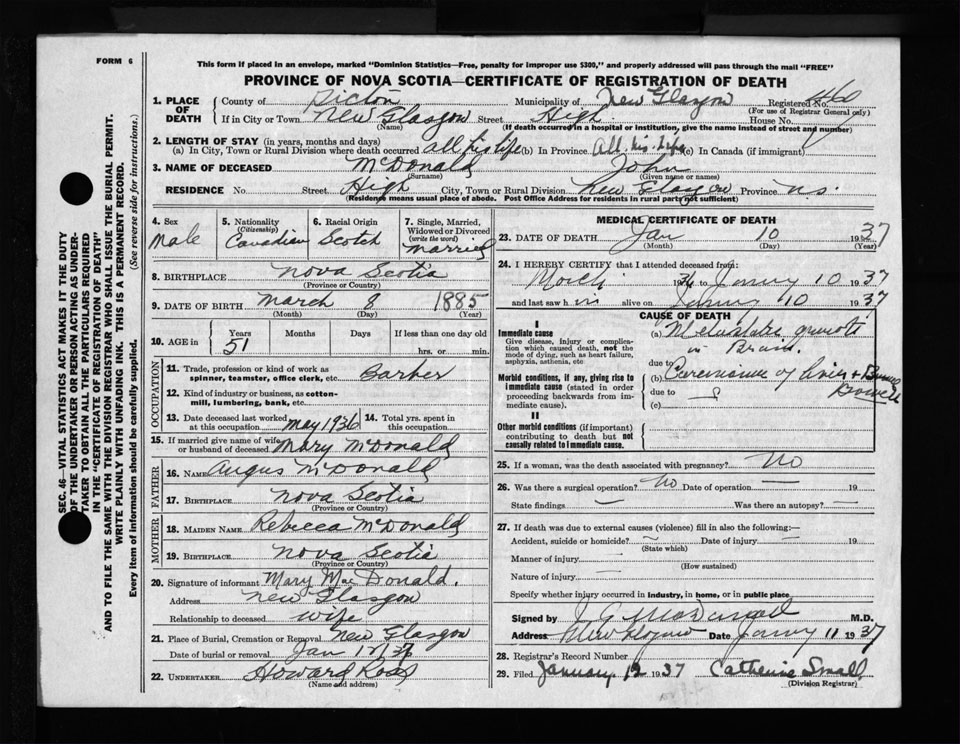 FORM 6
This form if placed in an envelope, marked "Dominion Statistics—Free, penalty for improper use $300," and properly addressed will pass through the mail "FREE"
PROVINCE OF NOVA SCOTIA—CERTIFICATE OF REGISTRATION OF DEATH
1. PLACE OF DEATH County of Pictou Municipality of New Glasgow Registered No. 460
(For use of Registrar General only)
If in City or Town New Glasgow Street High House No.
(Name) (If death occurred in a hospital or institution, give the name instead of street and number)
2. LENGTH OF STAY (in years, months and days)
(a) In City, Town or Rural Division where death occurred all his life (b) In Province All his life (c) In Canada (if immigrant)
3. NAME OF DECEASED McDonald John
(Surname) (Given name or names)
RESIDENCE No. Street High City, Town or Rural Division New Glasgow Province N.S.
(Residence means usual place of abode. Post Office Address for residents in rural parts not sufficient)
4. Sex Male
5. Nationality (Citizenship) Canadian
6. Racial Origin Scotch
7. Single, Married, Widowed or Divorced (write the word) Married
8. BIRTHPLACE Nova Scotia
(Province or Country)
9. DATE OF BIRTH March 8 1885
(Month) (Day) (Year)
10. AGE in Years Months Days If less than one day old
51 hrs. or min.
OCCUPATION
11. Trade, profession or kind of work as spinner, teamster, office clerk, etc. Barber
12. Kind of industry or business, as cotton-mill, lumbering, bank, etc.
13. Date deceased last worked at this occupation May 1936
14. Total yrs. spent in this occupation
15. If married give name of wife or husband of deceased Mary McDonald
FATHER
16. NAME Angus McDonald
17. BIRTHPLACE Nova Scotia
(Province or Country)
MOTHER
18. MAIDEN NAME Rebecca McDonald
19. BIRTHPLACE Nova Scotia
(Province or Country)
20. Signature of informant Mary MacDonald.
Address New Glasgow
Relationship to deceased wife
21. Place of Burial, Cremation or Removal New Glasgow
Date of burial or removal Jan 12/37
22. UNDERTAKER Howard Ross
(Name and address)
MEDICAL CERTIFICATE OF DEATH
23. DATE OF DEATH Jan 10 1937
(Month) (Day) (Year)
24. I HEREBY CERTIFY that I attended deceased from:
to 10 1937
and last saw him alive on 10 1937
CAUSE OF DEATH
I
Immediate cause
Give disease, injury or complication which caused death, not the mode of dying, such as heart failure, asphyxia, asthenia, etc.
(a) in Brain.
due to
Morbid conditions, if any, giving rise to immediate cause (stated in order proceeding backwards from immediate cause).
(b) Carcinoma of liver + Bowel
due to
(c)
II
Other morbid conditions (if important) contributing to death but not causally related to immediate cause.
25. If a woman, was the death associated with pregnancy? No
26. Was there a surgical operation? No Date of operation 19
State findings Was there an autopsy?
27. If death was due to external causes (violence) fill in also the following:—
Accident, suicide or homicide? Date of injury 19
(State which)
Manner of injury
(How sustained)
Nature of injury
Specify whether injury occurred in industry, in home, or in public place
Signed by M.D.
Address New Glasgow Date 11 1937
28. Registrar's Record Number
29. Filed January 12 1937 Catherine Small
(Division Registrar)
SEC. 46—VITAL STATISTICS ACT MAKES IT THE DUTY
OF THE UNDERTAKER OR PERSON ACTING AS UNDER-
TAKER TO OBTAIN ALL THE PARTICULARS REQUIRED
IN THE "CERTIFICATE OF REGISTRATION OF DEATH"
AND TO FILE THE SAME WITH THE DIVISION REGISTRAR WHO SHALL ISSUE THE BURIAL PERMIT.
WRITE PLAINLY WITH UNFADING INK. THIS IS A PERMANENT RECORD.
Every item of information should be carefully supplied. (See reverse side for instructions.)